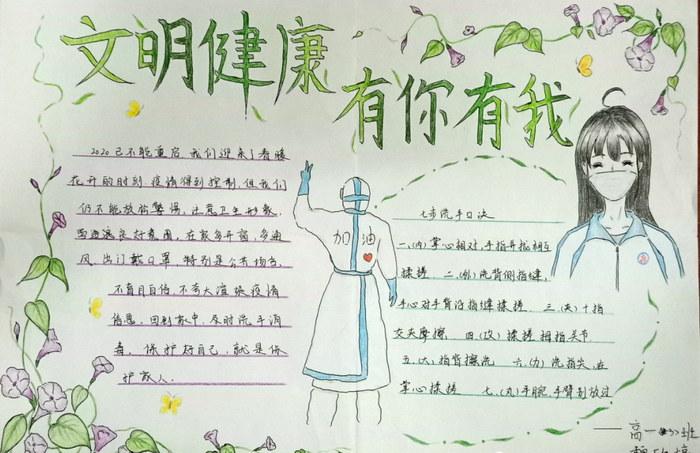 文明健康
有你有我
2020已不能重启,我们迎来了春暖
花开的时刻,疫情得到控制,但我们
仍不能放松警惕,注意卫生
良好 ,在家多开窗,多通
风,出门戴口罩,特别是公共场合,
不盲目自信,不夸大渲染疫情
信息,回到家中,及时洗手消
毒,保护好自己,就是保
护家人.
加油
七步洗手口决
一、(内)掌心相对,手指并拢相互
揉搓 二、(外)洗背侧指缝,
手心对手背沿指缝揉搓 三、(夹)十指
交夹摩擦, 四、(攻)揉搓拇指关节
五、(大)指背擦洗 六、(力)洗指尖,在
掌心揉搓 七、(丸)手腕,手臂别放过
——高一 班